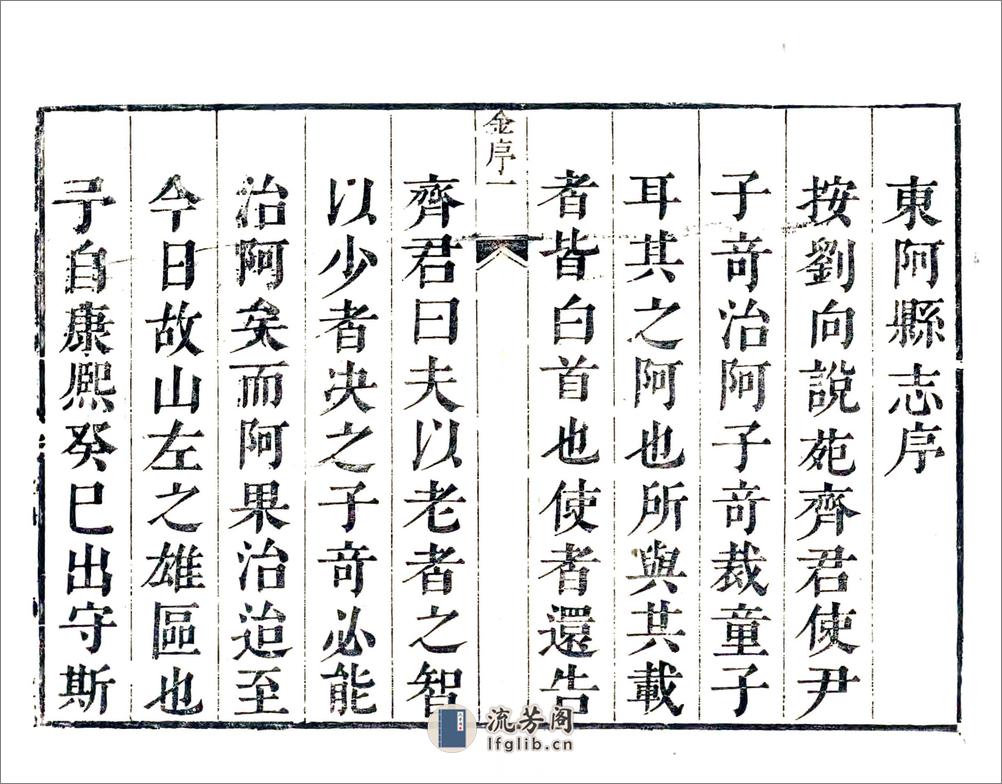 東阿縣志序
按劉向說苑齊君使尹
子竒治阿子竒裁童子
耳其之阿也所與其載
者皆白首也使者還告
金序一
齊君曰夫以老者之智
以少者决之子竒必能
治阿矣而阿果治迨至
今日故山左之雄區也
予自康熙癸巳出守斯
流芳阁
lfglib.cn